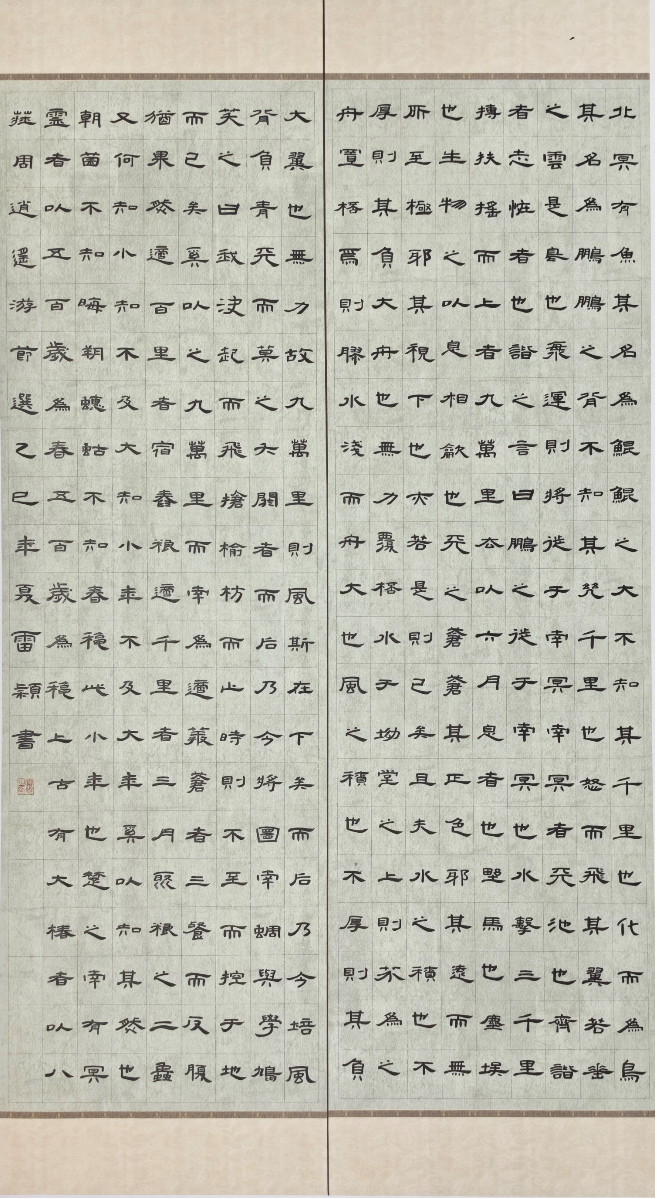 北冥有魚其名為鯤鯤之大不知其千里也化而為鳥
其名為鵬鵬之背不知其幾千里也怒而飛其翼若垂
之雲是鳥也飛運則將徙于南冥南冥者天池也齊諧
者志怪者也諧之言曰鵬之徙于南冥也水擊三千里
摶扶搖而上者九萬里去以六月息者也野馬也塵埃
也生物之以息相龡也天之蒼蒼其正色邪其遠而無
所至極邪其視下也亦若是則已矣且夫水之積也不
厚則其負大舟也無力覆桮水于坳堂之上則芥為之
舟置桮焉則膠水淺而舟大也風之積也不厚則其負
大翼也無力故九萬里則風斯在下矣而后乃今培風
背負青天而莫之夭閼者而后乃今將圖南蜩與學鳩
笑之曰我決起而飛搶榆枋而止時則不至而控于地
而已矣奚以之九萬里而南為適莽蒼者三餐而反腹
猶果然適百里者宿舂糧適千里者三月聚糧之二蟲
又何知小知不及大知小年不及大年奚以知其然也
朝菌不知晦朔蟪蛄不知春秋此小年也楚之南有冥
靈者以五百歲為春五百歲為秋上古有大椿者以八
莊周逍遙游節選乙巳年夏雷穎書